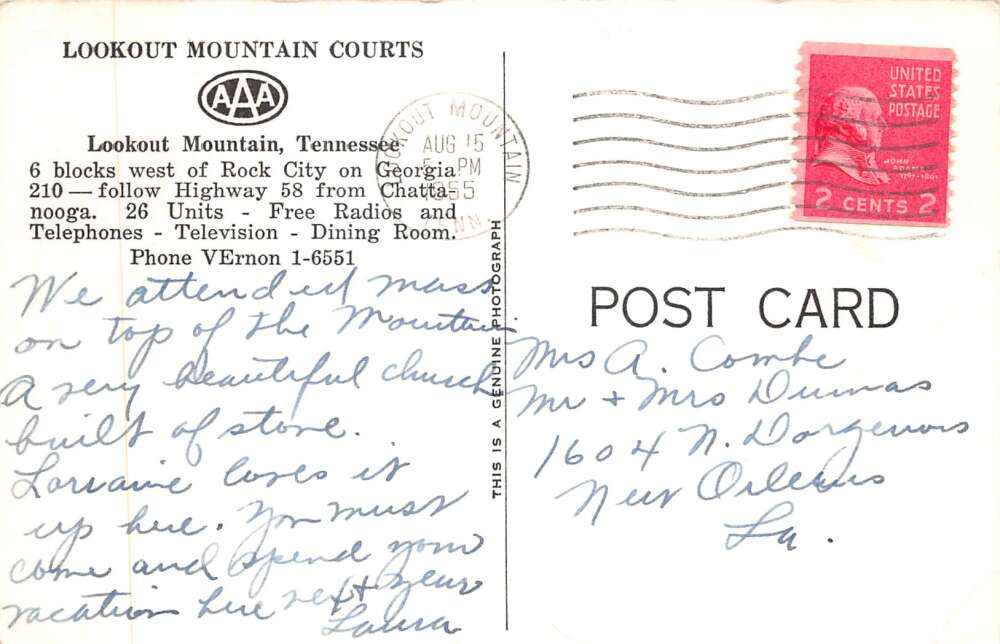 LOOKOUT MOUNTAIN COURTS
AAA
Lookout Mountain, Tennessee
6 blocks west of Rock City on Georgia
210 — follow Highway 58 from Chatta-
nooga. 26 Units - Free Radios and
Telephones - Television - Dining Room.
Phone VErnon 1-6551
We attended mass
on top of the Mountain
A very beautiful church
built of stone.
Lorraine loves it
up here. You must
come and spend your
vacation here next year
Laura
THIS IS A GENUINE PHOTOGRAPH
LOOKOUT MOUNTAIN
AUG 15
5 PM
1955
TENN
UNITED
STATES
POSTAGE
JOHN
ADAMS
2 CENTS 2
POST CARD
Mrs A. Combe
Mr + Mrs Dumas
1604 N. Dorgenois
New Orleans
La.